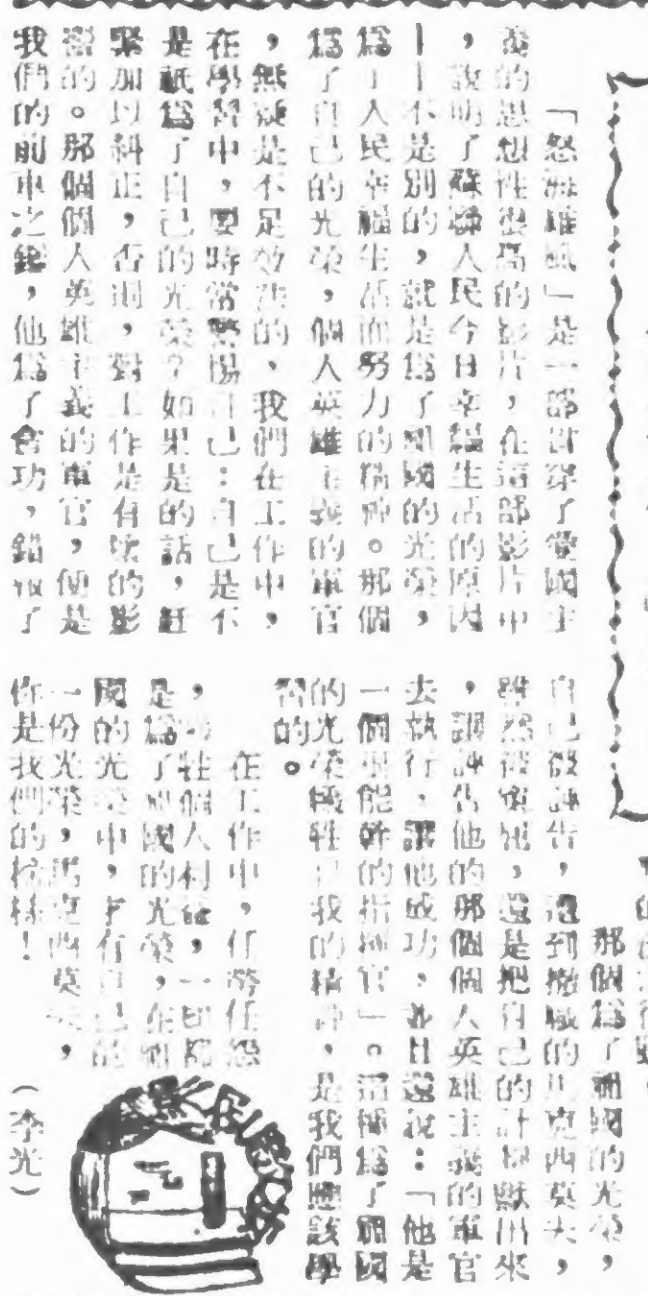 「怒海雄風」是一部貫穿了愛國主
義的思想性很高的影片，在這部影片中
，說明了蘇聯人民今日幸福生活的原因
——不是別的，就是為了祖國的光榮，
為了人民幸福生活而努力的精神。那個
為了自己的光榮，個人英雄主義的軍官
，無疑是不足效法的，我們在工作中，
在學習中，要時常警惕自己：自己是不
是祇為了自己的光榮？如果是的話，趕
緊加以糾正，否則，對工作是有壞的影
響的。那個個人英雄主義的軍官，便是
我們的前車之鑑，他為了奪功，錯報了
那個為了祖國的光榮，
自己被誣告，遭到撤職的馬克西莫夫，
雖然被冤屈，還是把自己的計劃獻出來
，讓誣告他的那個個人英雄主義的軍官
去執行，讓他成功，並且還說：「他是
一個很能幹的指揮官」。這種為了祖國
的光榮犧牲自我的精神，是我們應該學
習的。
在工作中，任勞任怨
，犧牲個人利益，一切都
是為了祖國的光榮，在祖
國的光榮中，才有自己的
一份光榮，馬克西莫夫，
你是我們的榜樣！
（李光）